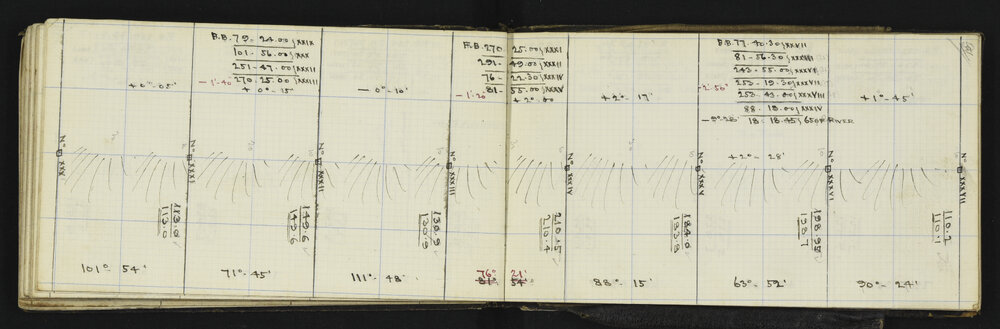 F.B. 79 - 24.00/XXIX
101 - 56.00/XXX
251 - 47.00/XXXII
- 1°- 40' 270. 25.00/XXXIII
+ 0°- 05'
+ 0°- 15'
- 0°- 10'
F.B. 270. 25.00/XXXI
291 - 49.00/XXXII
76 - 22.30/XXXIV
- 1°. 20' 81 - 55.00/XXXV
+ 2°. 00'
+ 2°- 17'
F.B. 77. 40.30/XXXII
81 - 56.30/XXXIII
243 - 55.00/XXXVI
- 2°. 50' 253 - 19.30/XXXVII
253. 43.00/XXXVIII
88. 18.00/XXXIV
- 9°- 28' 18. 18.45/ES OF RIVER
+ 1°- 45'
+ 2°- 28'
No XXX
No XXXI
No XXXII
No XXXIII
No XXXIV
No XXXV
No XXXVI
No XXXVII
113.0
113.0
149.6
149.6
130.9
130.9
210.5
210.4
184.0
183.9
198.95
198.7
110.2
110.1
101°- 54'
71°- 45'
111°- 48'
76° 21'
81° 54'
88°- 15'
63°- 52'
90°- 24'